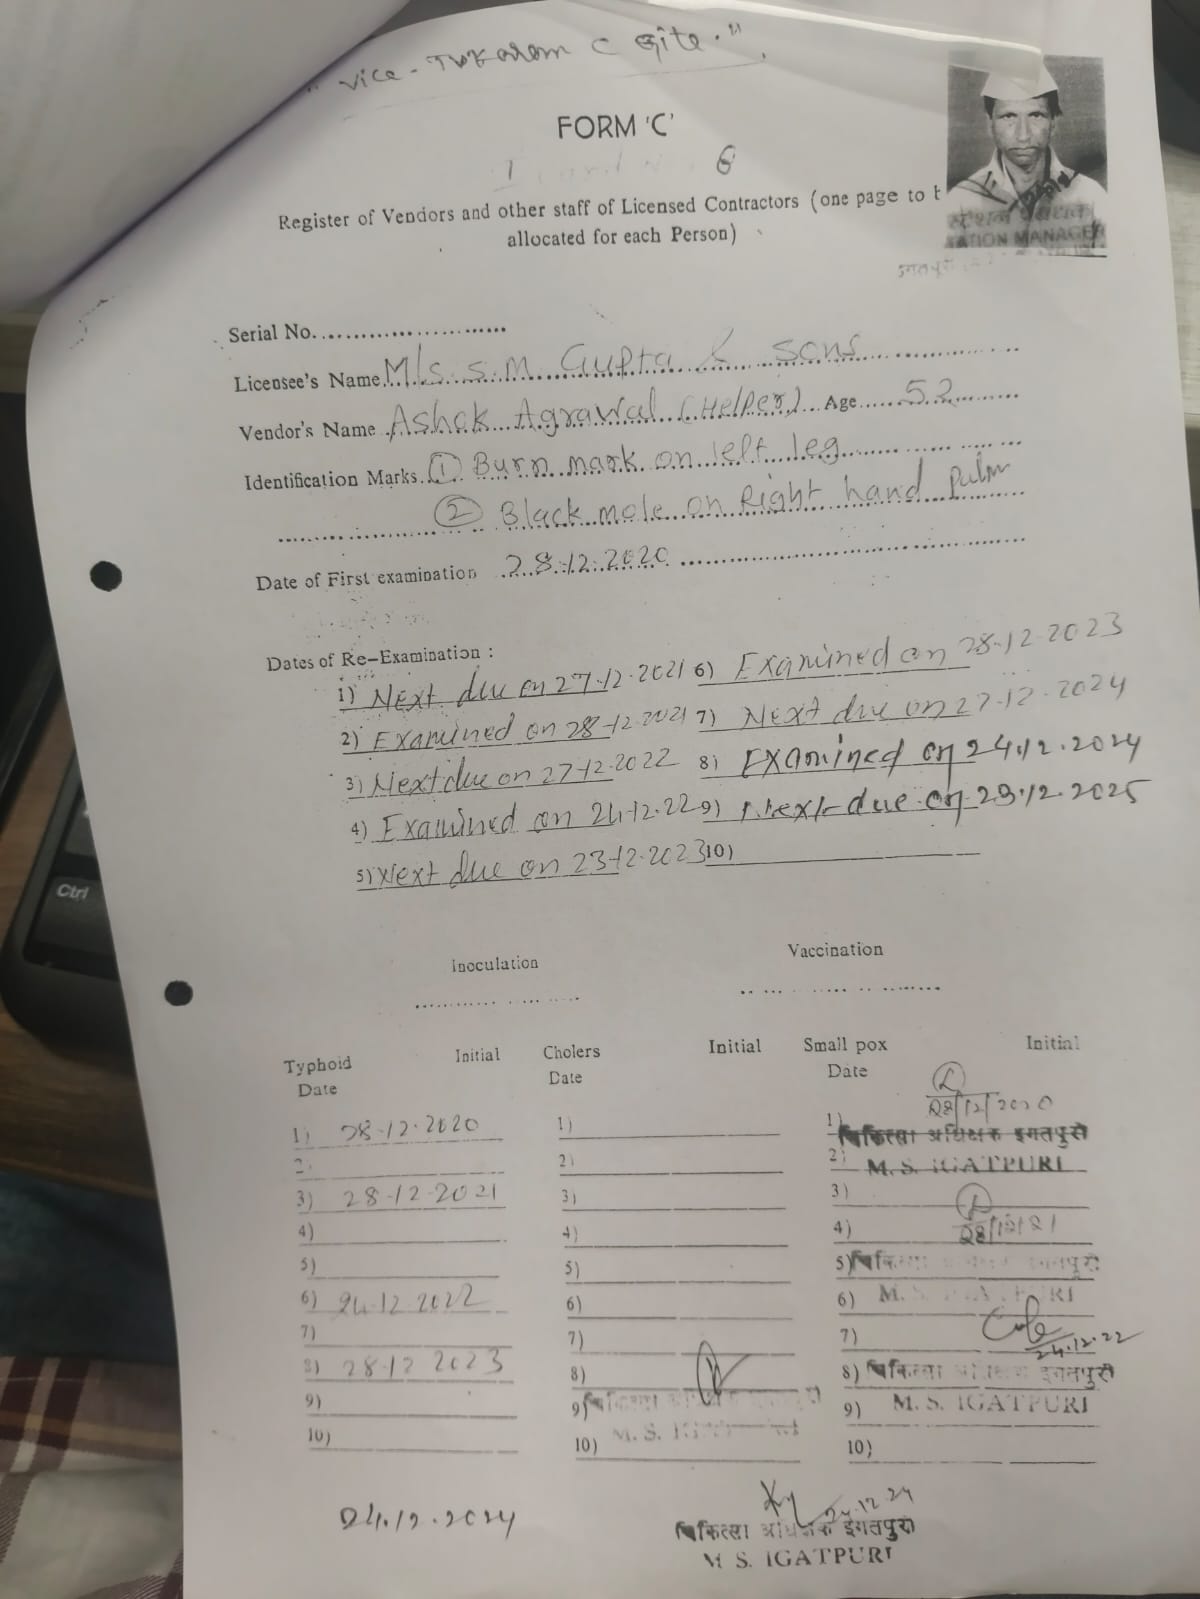 " Vice - Tukaram C Gite. "
FORM 'C'
6
Register of Vendors and other staff of Licensed Contractors (one page to b
allocated for each Person)
STATION MANAGER
Serial No.
Licensee's Name M/s. S.M. Gupta & sons
Vendor's Name Ashok Agrawal (Helper) Age 52
Identification Marks. (1) Burn mark on left leg
(2) Black mole on Right hand palm
Date of First examination 28.12.2020
Dates of Re-Examination :
1) Next due on 27.12.2021 6) Examined on 28.12.2023
2) Examined on 28.12.2021 7) Next due on 27.12.2024
3) Next due on 27.12.2022 8) Examined on 24.12.2024
4) Examined on 24.12.22 9) Next due on 23.12.2025
5) Next due on 23.12.2023 10)
Inoculation Vaccination
Typhoid Initial Cholers Initial Small pox Initial
Date Date Date
28/12/2020
1) 28.12.2020 1) 1) चिकित्सा अधिक्षक इगतपुरी
2) 2) 2) M. S. IGATPURI
3) 28-12-2021 3) 3)
4) 4) 4) 28/12/21
5) 5) 5) चिकित्सा इगतपुरी
6) 24.12.2022 6) 6) M. S. IGATPURI
7) 7) 7) 24.12.22
8) 28.12.2023 8) 8) चिकित्सा अधिक्षक इगतपुरी
9) 9) चिकित्सा 9) M. S. IGATPURI
10) 10) M. S. 10)
24.12.2024 24.12.24
चिकित्सा अधिक्षक इगतपुरी
M S. IGATPURI
Ctrl